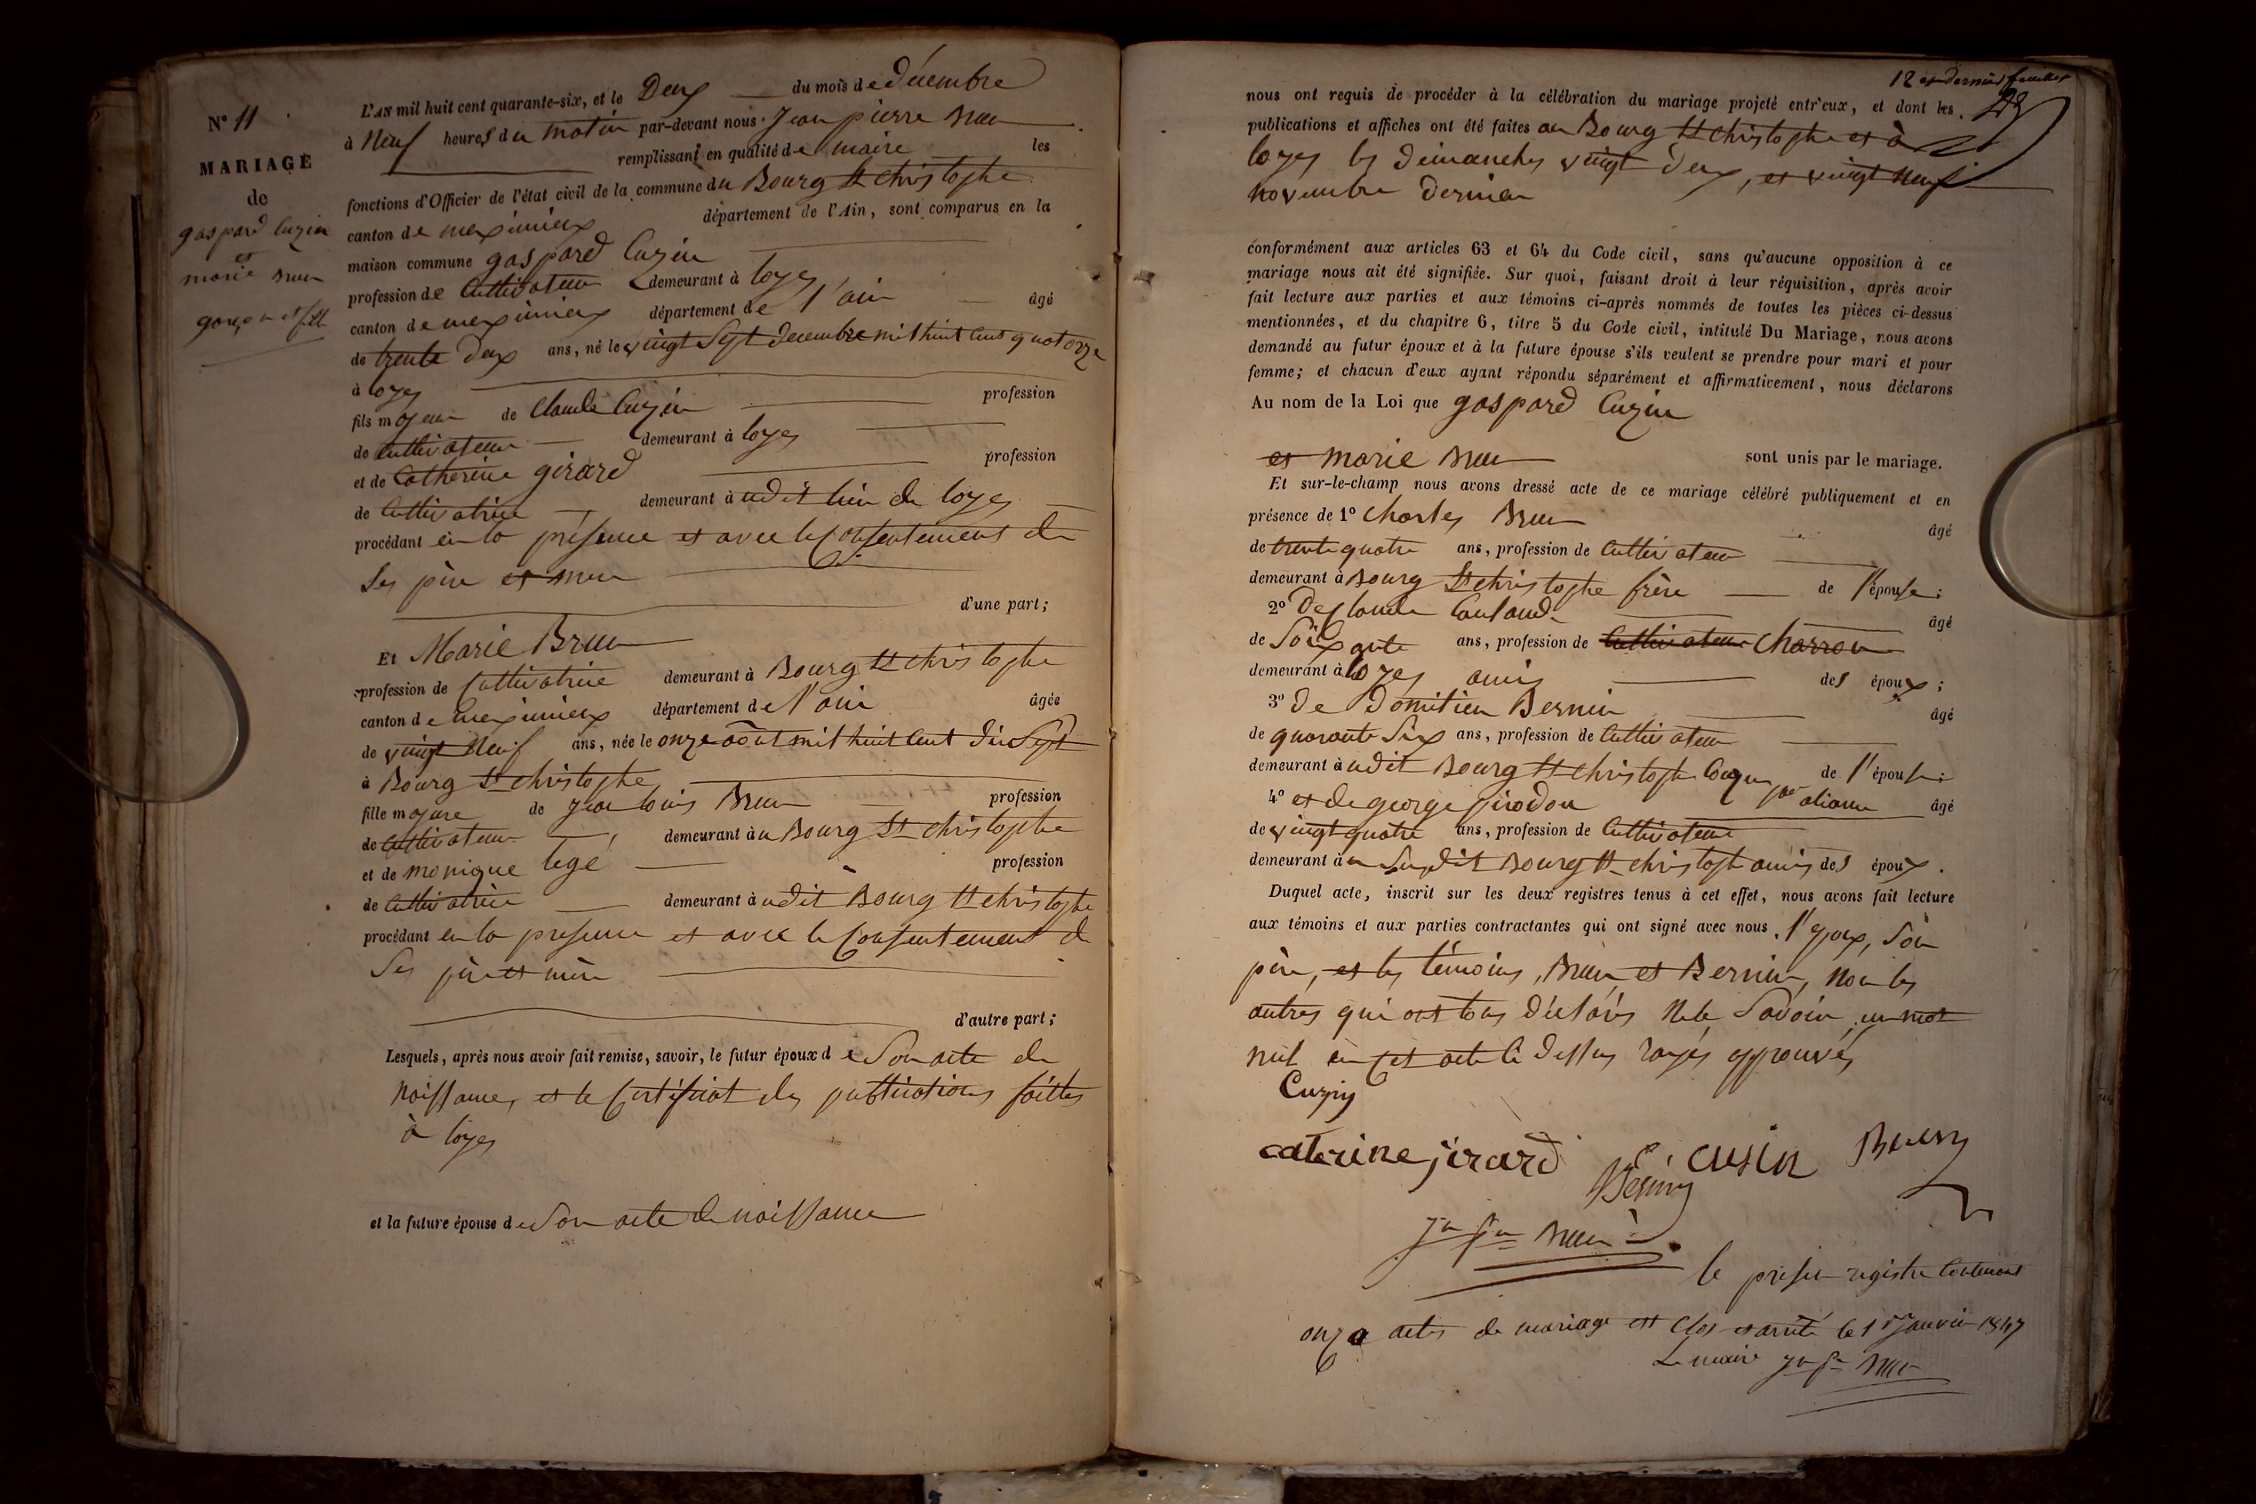 N° 11
MARIAGE
de
gaspard Cuzin
et
marie Brun
garçon et fille
L'AN mil huit cent quarante-six, et le Deux du mois de décembre
à Neuf heures du matin par-devant nous Jean pierre Brun
remplissant en qualité de maire les
fonctions d'Officier de l'état civil de la commune du Bourg St christophe
canton de meximieux département de l'Ain, sont comparus en la
maison commune gaspard Cuzin
profession de Cultivateur demeurant à loyes
canton de meximieux département de l'ain âgé
de trente deux ans, né le vingt Sept decembre mil huit cent quatorze
à loyes
fils majeur de Claude Cuzin profession
de Cultivateur demeurant à loyes
et de Catherine girard profession
de Cultivatrice demeurant à udit lieu de loyes
procédant en la présence et avec le Consentement de
Ses père et mère
d'une part;
Et Marie Brun
profession de Cultivatrice demeurant à Bourg St christophe
canton de meximieux département de l'ain âgée
de vingt Neuf ans, née le onze août mil huit Cent dix Sept
à Bourg St christophe
fille majeure de Jean louis Brun profession
de Cultivateur demeurant au Bourg St christophe
et de monique legé profession
de Cultivatrice demeurant à udit Bourg St christophe
procédant en la présence et avec le Consentement de
Ses père et mère
d'autre part;
Lesquels, après nous avoir fait remise, savoir, le futur époux de Son acte de
Naissance, et le Certificat des publications faittes
à loyes
et la future épouse de Son acte de naissance
12e et dernier feuillet
nous ont requis de procéder à la célébration du mariage projeté entr'eux, et dont les
publications et affiches ont été faites au Bourg St christophe et à
loyes les dimanches vingt deux, et vingt Neuf
novembre dernier
conformément aux articles 63 et 64 du Code civil, sans qu'aucune opposition à ce
mariage nous ait été signifiée. Sur quoi, faisant droit à leur réquisition, après avoir
fait lecture aux parties et aux témoins ci-après nommés de toutes les pièces ci-dessus
mentionnées, et du chapitre 6, titre 5 du Code civil, intitulé Du Mariage, nous avons
demandé au futur époux et à la future épouse s'ils veulent se prendre pour mari et pour
femme; et chacun d'eux ayant répondu séparément et affirmativement, nous déclarons
Au nom de la Loi que gaspard Cuzin
et marie Brun sont unis par le mariage.
Et sur-le-champ nous avons dressé acte de ce mariage célébré publiquement et en
présence de 1° Charles Brun âgé
de trente quatre ans, profession de Cultivateur
demeurant à Bourg St christophe frère de l'épouse;
2° De Claude âgé
de Soixante ans, profession de Cultivateur Charron
demeurant à loyes amis des époux;
3° de Domitien Bernin âgé
de quarante Six ans, profession de Cultivateur
demeurant à udit Bourg St christophe Cousin par aliance de l'épouse;
4° et de george girodon âgé
de vingt quatre ans, profession de Cultivateur
demeurant au Susdit Bourg St christophe amis des époux.
Duquel acte, inscrit sur les deux registres tenus à cet effet, nous avons fait lecture
aux témoins et aux parties contractantes qui ont signé avec nous, l'époux, Son
père, et les témoins, Brun et Bernin, Non les
autres qui ont tous déclarés Ne le Savoir un mot
nul en cet acte ci dessus rayés approuvés
Cuzin
caterine jirard C. CUSIN Brun
Bernin
Jn pre Brun
le présent registre Contenant
onze actes de mariage est Clos et arrêté le 1er Janvier 1847
Le maire Jn pre Brun